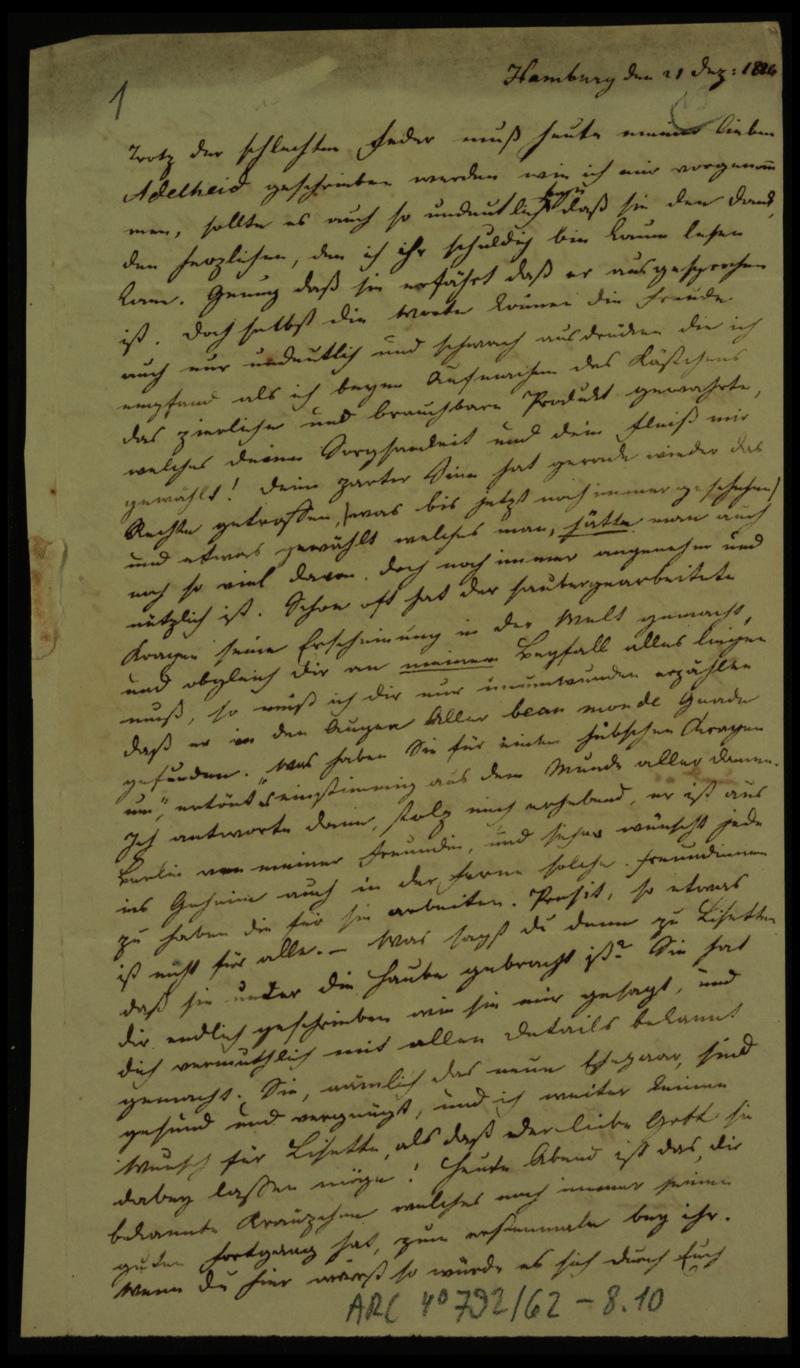 1
Hamburg den 21 Dez: 1826
Trotz der schlechten Feder muß heute meiner lieben
Adelheid geschrieben werden wie ich mir vorgenom
men, sollte es auch so undeutlich seyn daß sie den Dank,
den herzlichen, den ich ihr schuldig bin kaum lesen
kann. Genug daß sie erfährt daß er ausgesprochen
ist. Doch selbst die Worte können die Freude
auch nur undeutlich und schwach ausdrücken die ich
empfand als ich beym Aufmachen des Kästchens
das zierliche und brauchbare Produkt gewahrte,
welches deine Sorgsamkeit und dein Fleiß mir
gewählt! Dein zarter Sinn hat gerade wieder das
Rechte getroffen, (was bis jetzt noch immer geschehen)
und etwas gewählt welches man, hätte man auch
noch so viel davon, doch noch immer angenehm und
nützlich ist. Schon oft hat der saubergearbeitete
Kragen seine Erscheinung in der Welt gemacht,
und obgleich dir an meinem Beyfall alles liegen
muß, so muß ich dir nur unumwunden erzählen
daß er in den Augen Aller beau monde Gnade
gefunden. "Was haben Sie für einen hübschen Kragen
um," ertönt es einstimmig aus dem Munde aller Damen.
Ich antworte dann, stolz mich erhebend, er ist aus
Berlin von meiner Freundin, und sicher wünscht jede
ins Geheim auch in der Ferne solche Freundinnen
zu haben die für sie arbeiten. Prosit, so etwas
ist nicht für alle. – Was sagst du denn zu Lisetten
daß sie unter die Haube gebracht ist? Sie hat
dir endlich geschrieben wie sie mir gesagt, und
dich vermuthlich mit allen Details bekannt
gemacht. Sie, nämlich das neue Ehepaar, sind
gesund und vergnügt, und ich weiter keinen
Wunsch für Lisette, als daß der liebe Gott sie
dabey lassen möge! Heute Abend ist das, dir
bekannte Kränzchen welches noch immer seinen
guten Fortgang hat, zum erstenmale bey ihr.
Wenn du hier wärest so würde es sich durch Euch
ARC 4° 792/62 – 8.10